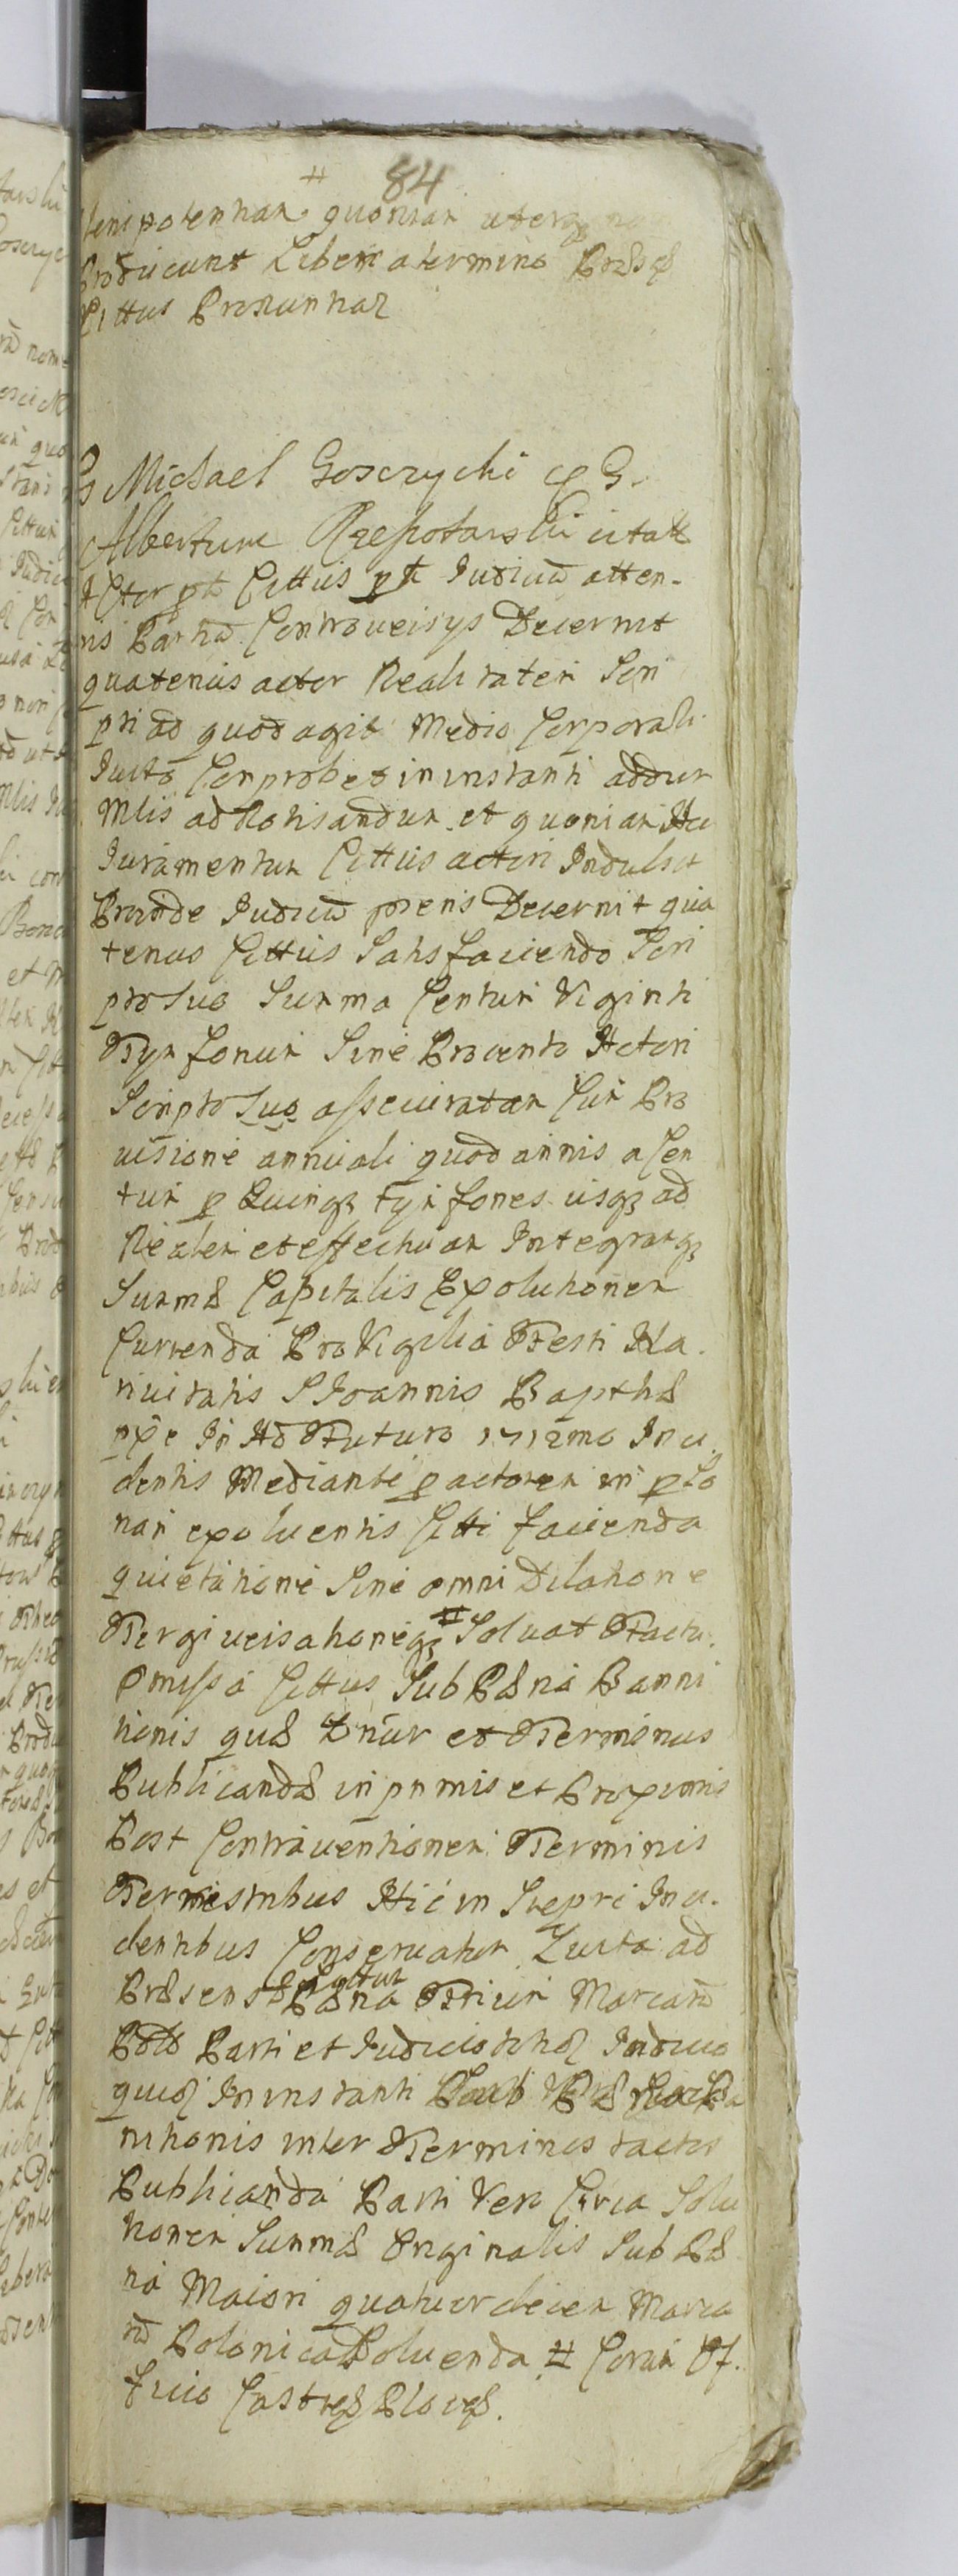 84
#
plenipotentiar quoniam uterq no
Producunt Liberu a termino Præsq
Cittus Pronuntiat
Gs Michael Goscrycki cp G.
Albertum Rzepotarski citatt
Actor ptt Cittus ptt Judiciū atten-
tis Partiū Controversys Decernit
quatenus actor Realitatem Scri
pti ad quod agit Medio Corporali
Jurto Comprobet in instanti addur
Mlis ad Rotisandum et quoniam Hu
Juramentum Cittus actori Indulsit
Proinde Judiciū prens Decernit qua
tenus Cittus Satisfaciendo Scri
pto suo Summa Centum Viginti
Tymfonum Sine Provento Actori
Scripto suo assecuratam Cum Pro
uisione annuali quod annis a Cen
tum p Quinq tymfones usq ad
Realem et effectuam Integramq
Summæ Capitalis Expolutionem
Currenda Pro Vigilia Festi Na.
tiuitatis S Joannis Baptthæ
pxe In Ao Futuro 1712mo Inci.
dentis Mediante p actorem in pso
nam expoluentis Citti facienda
quietatione Sine omni Dilatione
Tergiuersationeq # Soluat Facta.
Omissa Cittus Sub Pæna Banni
tionis quæ Dnur et Terminus
Publicandæ in primis et Proximis
Post Contrauentionem Terminis
Termestribus Hic in Srepri Inci.
dentibus Conseruatur Luita ad
Præsens Luitur Pæna Trium Marcarū
Parti et Judicio Judicio
quiq In instanti Sub
nitionis inter Terminos tactos
Publicanda Parti Vero Circa Solu
tionem Summæ Originalis Sub Pæ
na Maiori quatuordecem Marca
rū Polonica Soluenda # Coram Of.
ficio Castreq Ploceq.